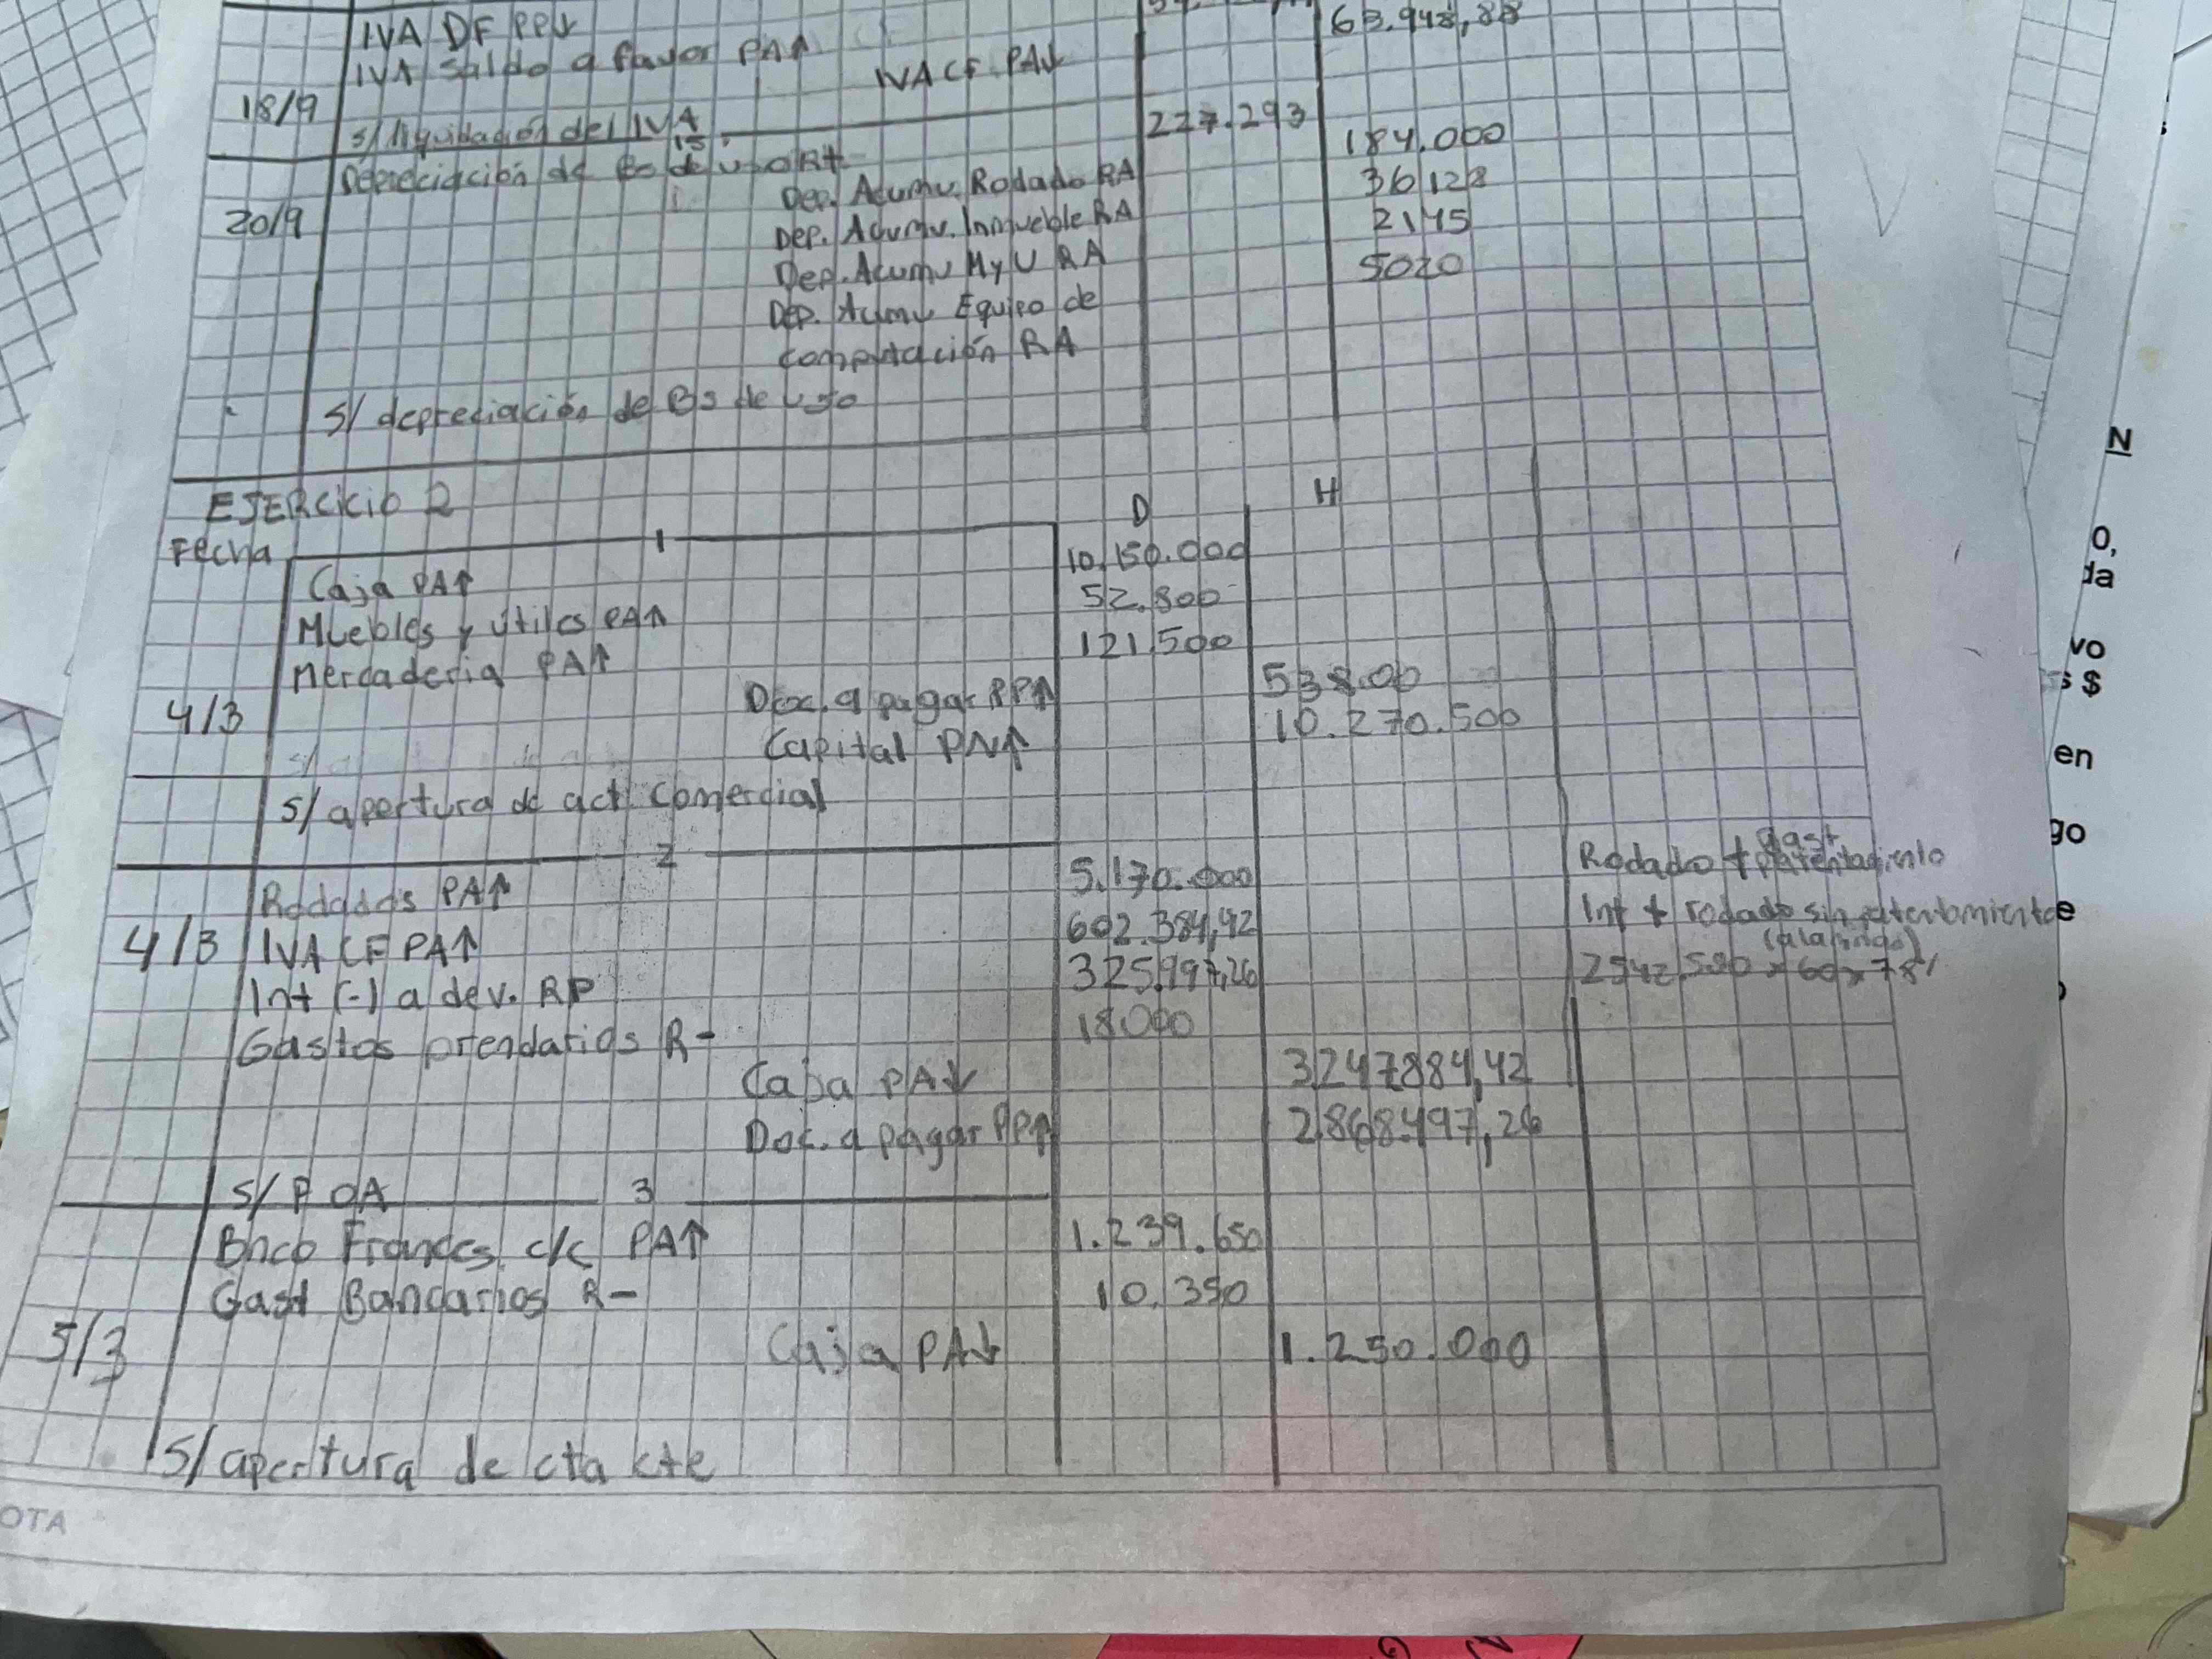 IVA DF PP↓ 63.948,88
IVA Saldo a favor PA↑
IVA CF PA↓
18/9
s/ liquidación del IVA
15
Depreciación de Bs de uso R+ 227.293
Dep. Acumu. Rodado RA 184.000
20/9 Dep. Acumu. Inmueble RA 36128
Dep. Acumu MyU RA 2145
Dep. Acumu Equipo de 5020
computación RA
s/ depreciación de Bs de uso
EJERCICIO 2
Fecha 1 D H
Caja PA↑ 10.150.000
Muebles y útiles PA↑ 52.800
Mercaderia PA↑ 121.500
4/3 Doc. a pagar PP↑ 538.00
Capital PN↑ 10.270.500
s/ apertura de act comercial
2
Rodados PA↑ 5.170.000 Rodado + gast patentamiento
4/3 IVA CF PA↑ 602.384,42 Int + rodado sin patentamiento
Int (-) a dev. RP 325.997,26 (alarmado)
Gastos prendarios R- 18000
Caja PA↓ 3247884,42
Doc. a pagar PP↑ 2.868.497,26
s/ P OA
3
Bnco Frances c/c PA↑ 1.239.650
Gast Bancarios R- 10.350
5/3 Caja PA↓ 1.250.000
S/ apertura de cta cte
OTA
N
0,
da
vo
s $
en
go
e